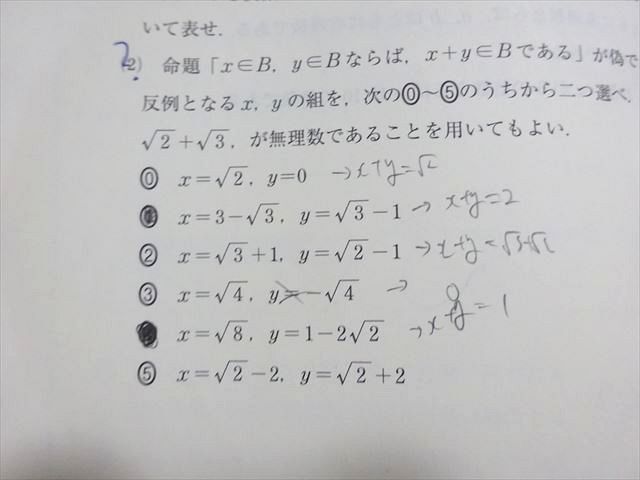 いて表せ.
2.
(2) 命題「x∈B, y∈Bならば, x+y∈Bである」が偽で
反例となるx, yの組を, 次の⓪〜⑤のうちから二つ選べ.
√2+√3, が無理数であることを用いてもよい.
⓪ x=√2, y=0 →x+y=√2
x=3−√3, y=√3−1 → x+y=2
② x=√3+1, y=√2−1 →x+y=√3+√2
③ x=√4, y=−√4 → 0
x=√8, y=1−2√2 →x+y=1
⑤ x=√2−2, y=√2+2